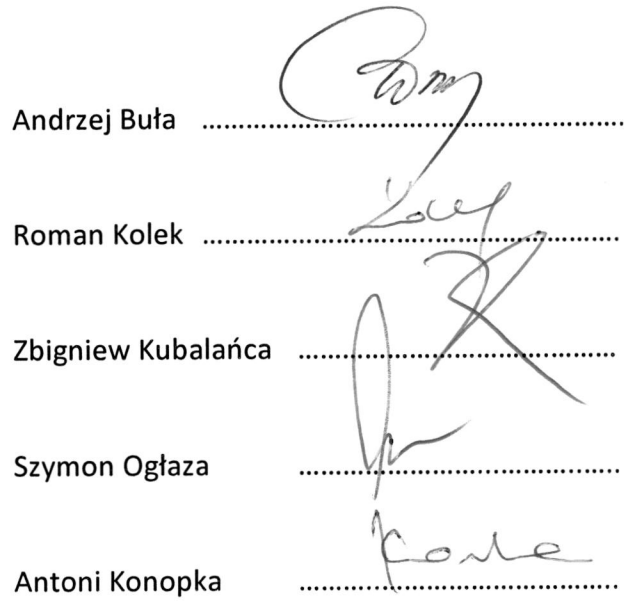 Andrzej Buła ........................................................
Roman Kolek ........................................................
Zbigniew Kubalańca ...........................................
Szymon Ogłaza ...........................................
Antoni Konopka ...........................................